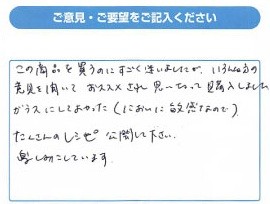 ご意見・ご要望をご記入ください
この商品を買うのにすごく迷いましたが、いろんな方の
意見を聞いて おススメされ 思いきって購入しました
ガラスにしてよかった(においに敏感なので)
たくさんのレシピ 公開して下さい。
楽しみにしています。